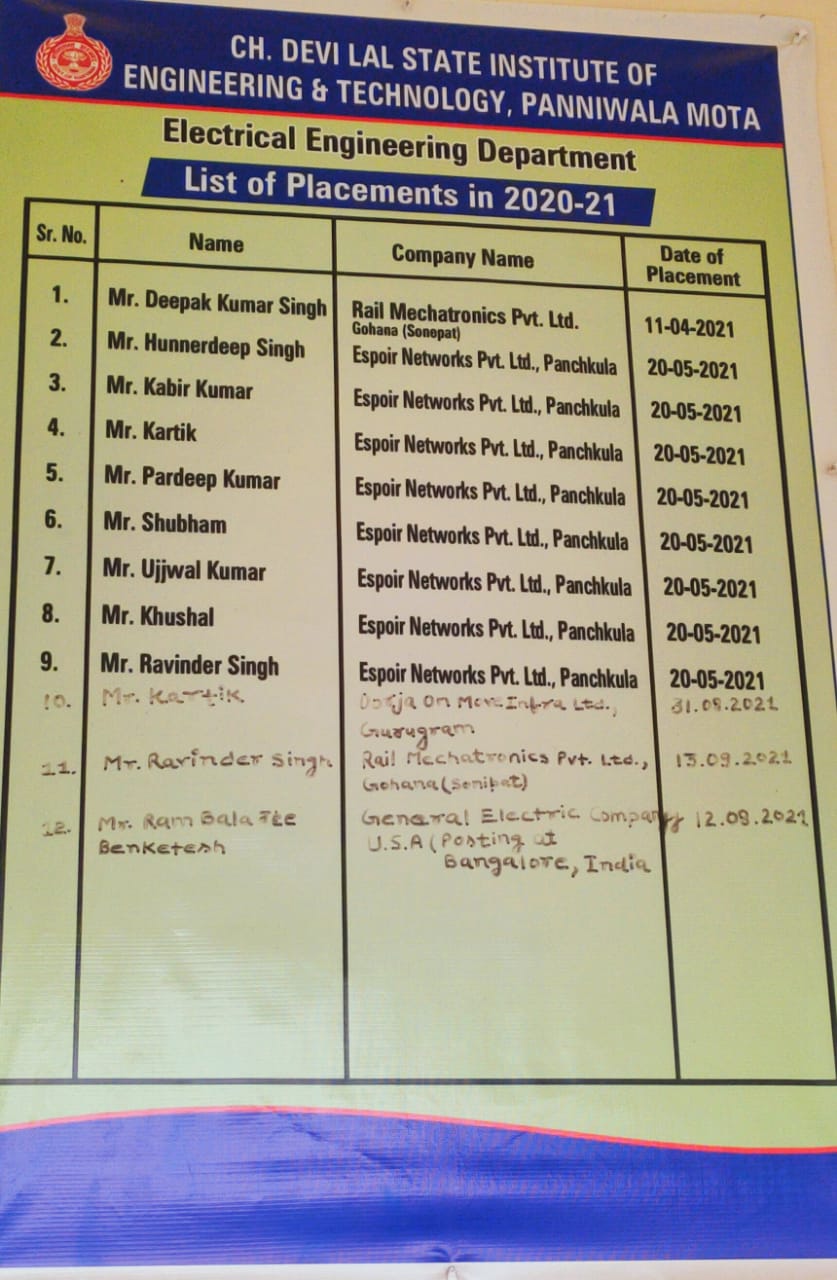 CH. DEVI LAL STATE INSTITUTE OF
ENGINEERING & TECHNOLOGY, PANNIWALA MOTA
Electrical Engineering Department
List of Placements in 2020-21
Sr. No. Name Company Name Date of Placement
1. Mr. Deepak Kumar Singh Rail Mechatronics Pvt. Ltd. 11-04-2021
Gohana (Sonepat)
2. Mr. Hunnerdeep Singh Espoir Networks Pvt. Ltd., Panchkula 20-05-2021
3. Mr. Kabir Kumar Espoir Networks Pvt. Ltd., Panchkula 20-05-2021
4. Mr. Kartik Espoir Networks Pvt. Ltd., Panchkula 20-05-2021
5. Mr. Pardeep Kumar Espoir Networks Pvt. Ltd., Panchkula 20-05-2021
6. Mr. Shubham Espoir Networks Pvt. Ltd., Panchkula 20-05-2021
7. Mr. Ujjwal Kumar Espoir Networks Pvt. Ltd., Panchkula 20-05-2021
8. Mr. Khushal Espoir Networks Pvt. Ltd., Panchkula 20-05-2021
9. Mr. Ravinder Singh Espoir Networks Pvt. Ltd., Panchkula 20-05-2021
10. Mr. Kartik On Infra Ltd.,
Gurugram
11. Mr. Ravinder Singh Rail Mechatronics Pvt. Ltd., 13.09.2021
Gohana (Sonipat)
12. Mr. Ram Bala General Electric Company
Benketesh U.S.A (Posting at
Bangalore, India